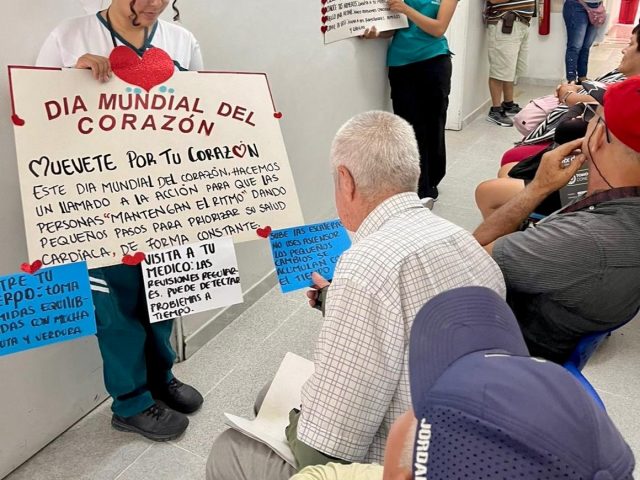 DIA MUNDIAL DEL
CORAZÓN
MUEVETE POR TU CORAZÓN
ESTE DIA MUNDIAL DEL CORAZÓN, HACEMOS
UN LLAMADO A LA ACCIÓN PARA QUE LAS
PERSONAS "MANTENGAN EL RITMO" DANDO
PEQUEÑOS PASOS PARA PRIORIZAR SU SALUD
CARDÍACA, DE FORMA CONSTANTE.
VISITA A TU
MEDICO: LAS
REVISIONES REGULAR-
ES, PUEDE DETECTAR
PROBLEMAS A
TIEMPO.
SUBE LAS ESCALERAS
NO USES ASCENSOR
LOS PEQUEÑOS
CAMBIOS SE
ACUMULAN CO
EL TIEMPO
TRE TU
ERPO: TOMA
MIDAS EQUILIB-
DAS CON MUCHA
UTA Y VERDURA
JORDAN